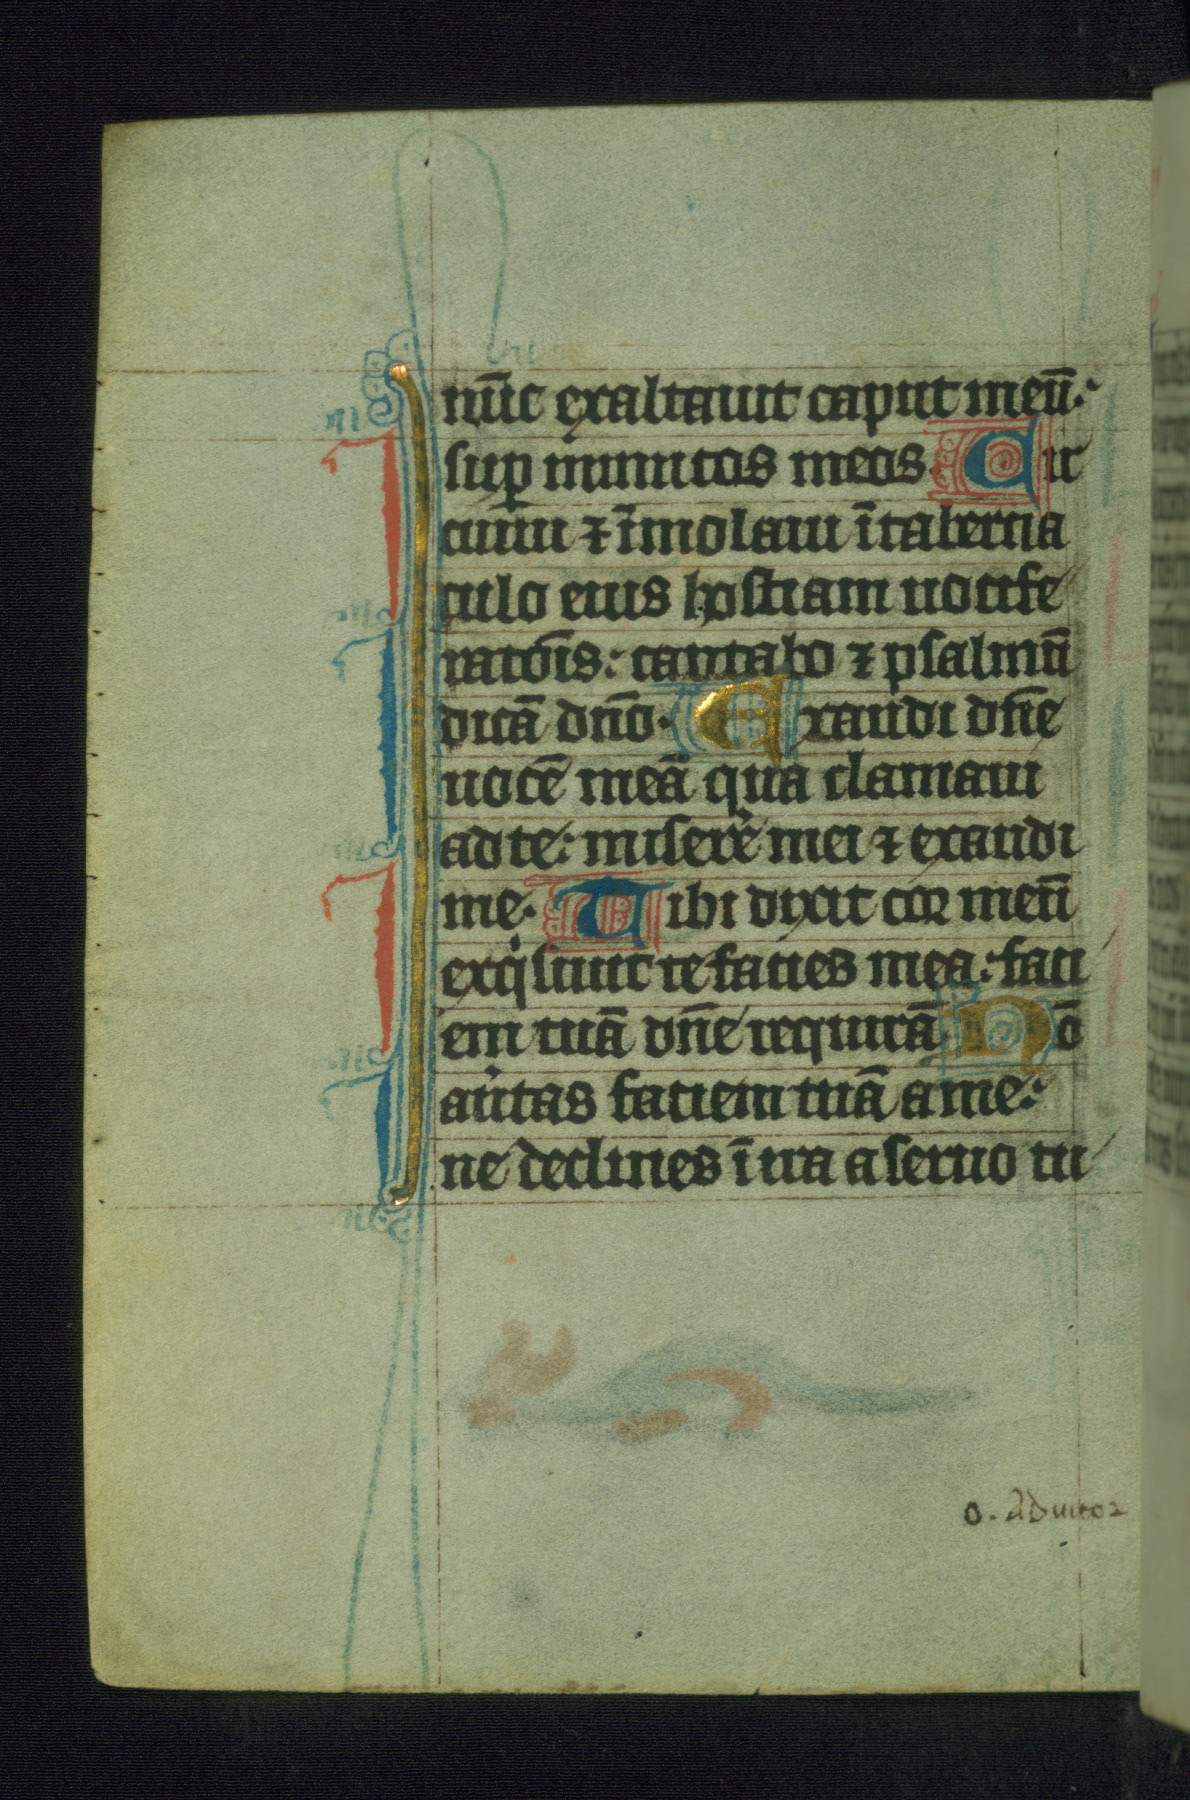 nūc exaltauit caput meū·
sup inimicos meos· Cir
cuiui ⁊ īmolaui ī taberna
culo eius hostiam uocife
ratōis: cantabo ⁊ psalmū
dicā dn̄o· Exaudi dn̄e
uocē meā qua clamaui
ad te: miserē mei ⁊ exaudi
me· Tibi dixit cor meū
exq̇siuit te facies mea: faci
em tuā dn̄e requirā· Nō
au̾tas faciem tuā a me:
ne declines ī ira a seruo tu
o· Adiutor